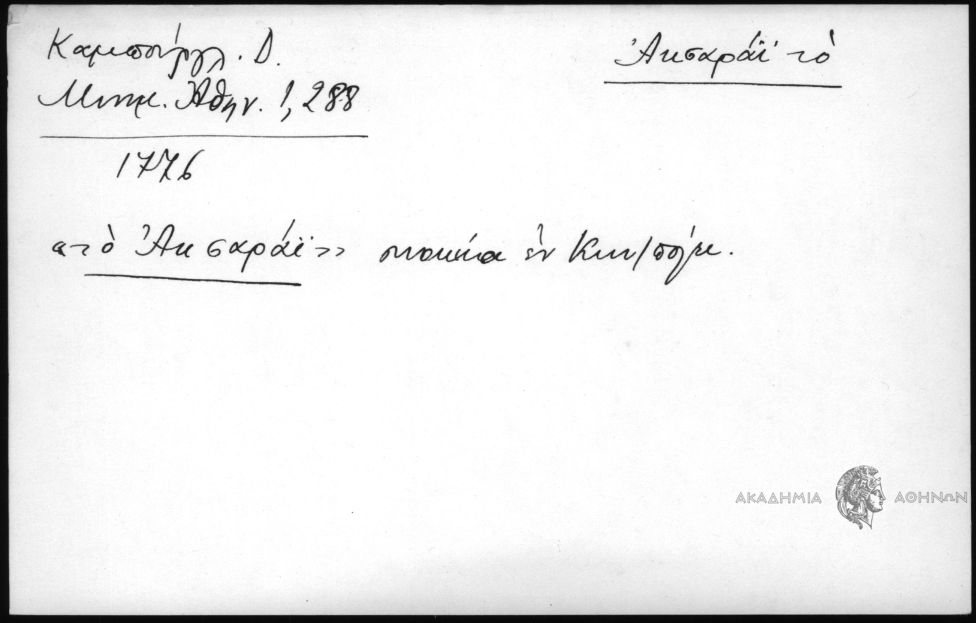 Καμπούργλ. Δ.
Μνημ. Ἀθην. 1, 288
Ἀκσαράϊ τὸ
1776
«τὸ Ἀκσαράϊ» συνοικία ἐν Κων/πόλει.
ΑΚΑΔΗΜΙΑ ΑΘΗΝΩΝ